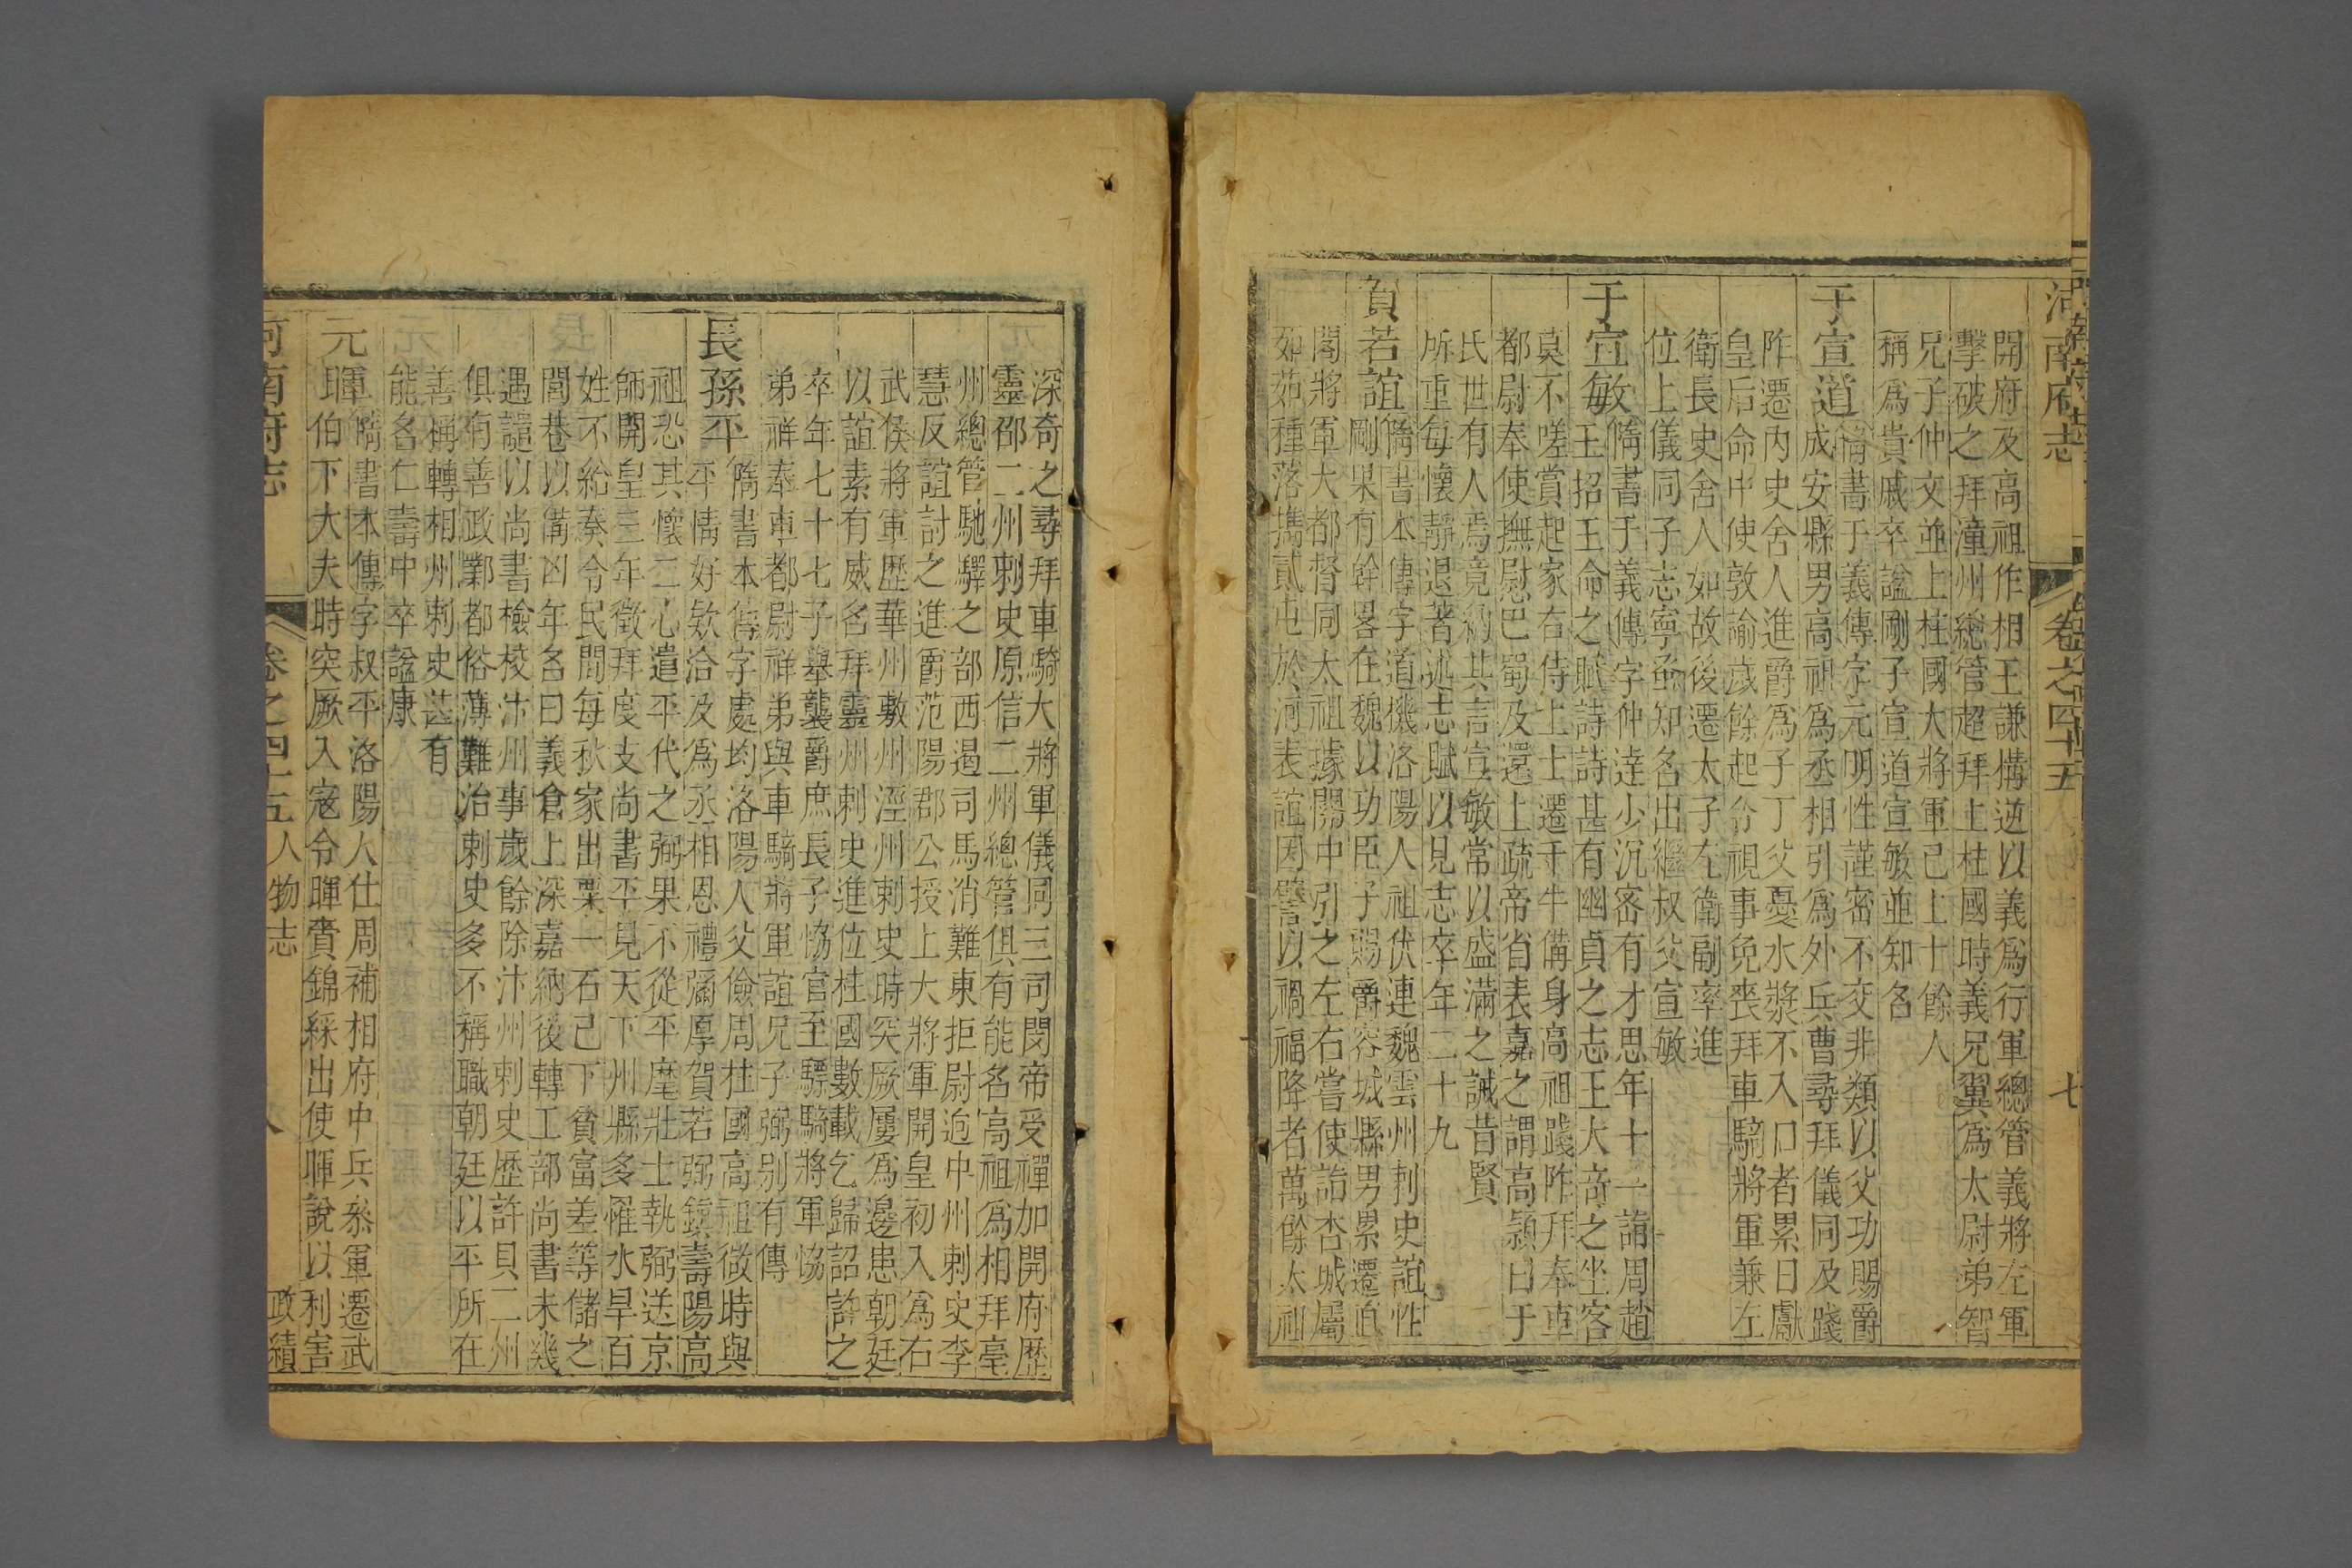 河南府志　卷之四十五　七
開府及高祖作相王謙構逆以義爲行軍總管義將左軍
擊破之拜潼州總管超拜上柱國時義兄翼爲太尉弟智
兄子仲文並上柱國大將軍已上十餘人
稱爲貴戚卒諡剛子宣道宣敏並知名
于宣道隋書于義傳字元明性謹密不交非類以父功賜爵
成安縣男高祖爲丞相引爲外兵曹尋拜儀同及踐
阼遷內史舍人進爵爲子丁父憂水漿不入口者累日獻
皇后命中使敦諭歲餘起令視事免喪拜車騎將軍兼左
衛長史舍人如故後遷太子左衛副率進
位上儀同子志寧蚤知名出繼叔父宣敏
于宣敏隋書于義傳字仲逹少沉密有才思年十一詣周趙
王招王命之賦詩詩甚有幽貞之志王大奇之坐客
莫不嗟賞起家右侍上士遷千牛備身高祖踐阼拜奉車
都尉奉使撫慰巴蜀及還上疏帝省表嘉之謂高熲曰于
氏世有人焉竟納其言宣敏常以盛滿之誡昔賢
所重每懷靜退著述志賦以見志卒年二十九
賀若誼隋書本傳字道機洛陽人祖伏連魏雲州刺史誼性
剛果有幹畧在魏以功臣子賜爵容城縣男累遷直
閣將軍大都督同太祖據關中引之左右嘗使詣杏城屬
茹茹種落攜貳屯於河表誼因譬以禍福降者萬餘太祖
深奇之尋拜車騎大將軍儀同三司閔帝受禪加開府歷
靈邵二州刺史原信二州總管俱有能名高祖爲相拜亳
州總管馳驛之部西遏司馬消難東拒尉迥申州刺史李
慧反誼討之進爵范陽郡公授上大將軍開皇初入爲右
武侯將軍歷華州敷州涇州刺史時突厥屢爲邊患朝廷
以誼素有威名拜靈州刺史進位柱國數載乞歸詔許之
卒年七十七子舉襲爵庶長子協官至驃騎將軍協
弟祥奉車都尉祥弟與車騎將軍誼兄子弼别有傳
長孫平隋書本傳字處均洛陽人父儉周柱國高祖微時與
平情好欵洽及爲丞相恩禮彌厚賀若弼鎮壽陽高
祖恐其懷二心遣平代之弼果不從平麾壯士執弼送京
師開皇三年徵拜度支尚書平見天下州縣多罹水旱百
姓不給奏令民間每秋家出粟一石已下貧富差等儲之
閭巷以備凶年名曰義倉上深嘉納後轉工部尚書未幾
遇譴以尚書檢校汴州事歲餘除汴州刺史歷許貝二州
俱有善政鄴都俗薄難治刺史多不稱職朝廷以平所在
善稱轉相州刺史甚有
能名仁壽中卒諡康
元暉隋書本傳字叔平洛陽人仕周補相府中兵參軍遷武
伯下大夫時突厥入寇令暉賚錦綵出使暉說以利害
河南府志　卷之四十五　人物志　八　政績